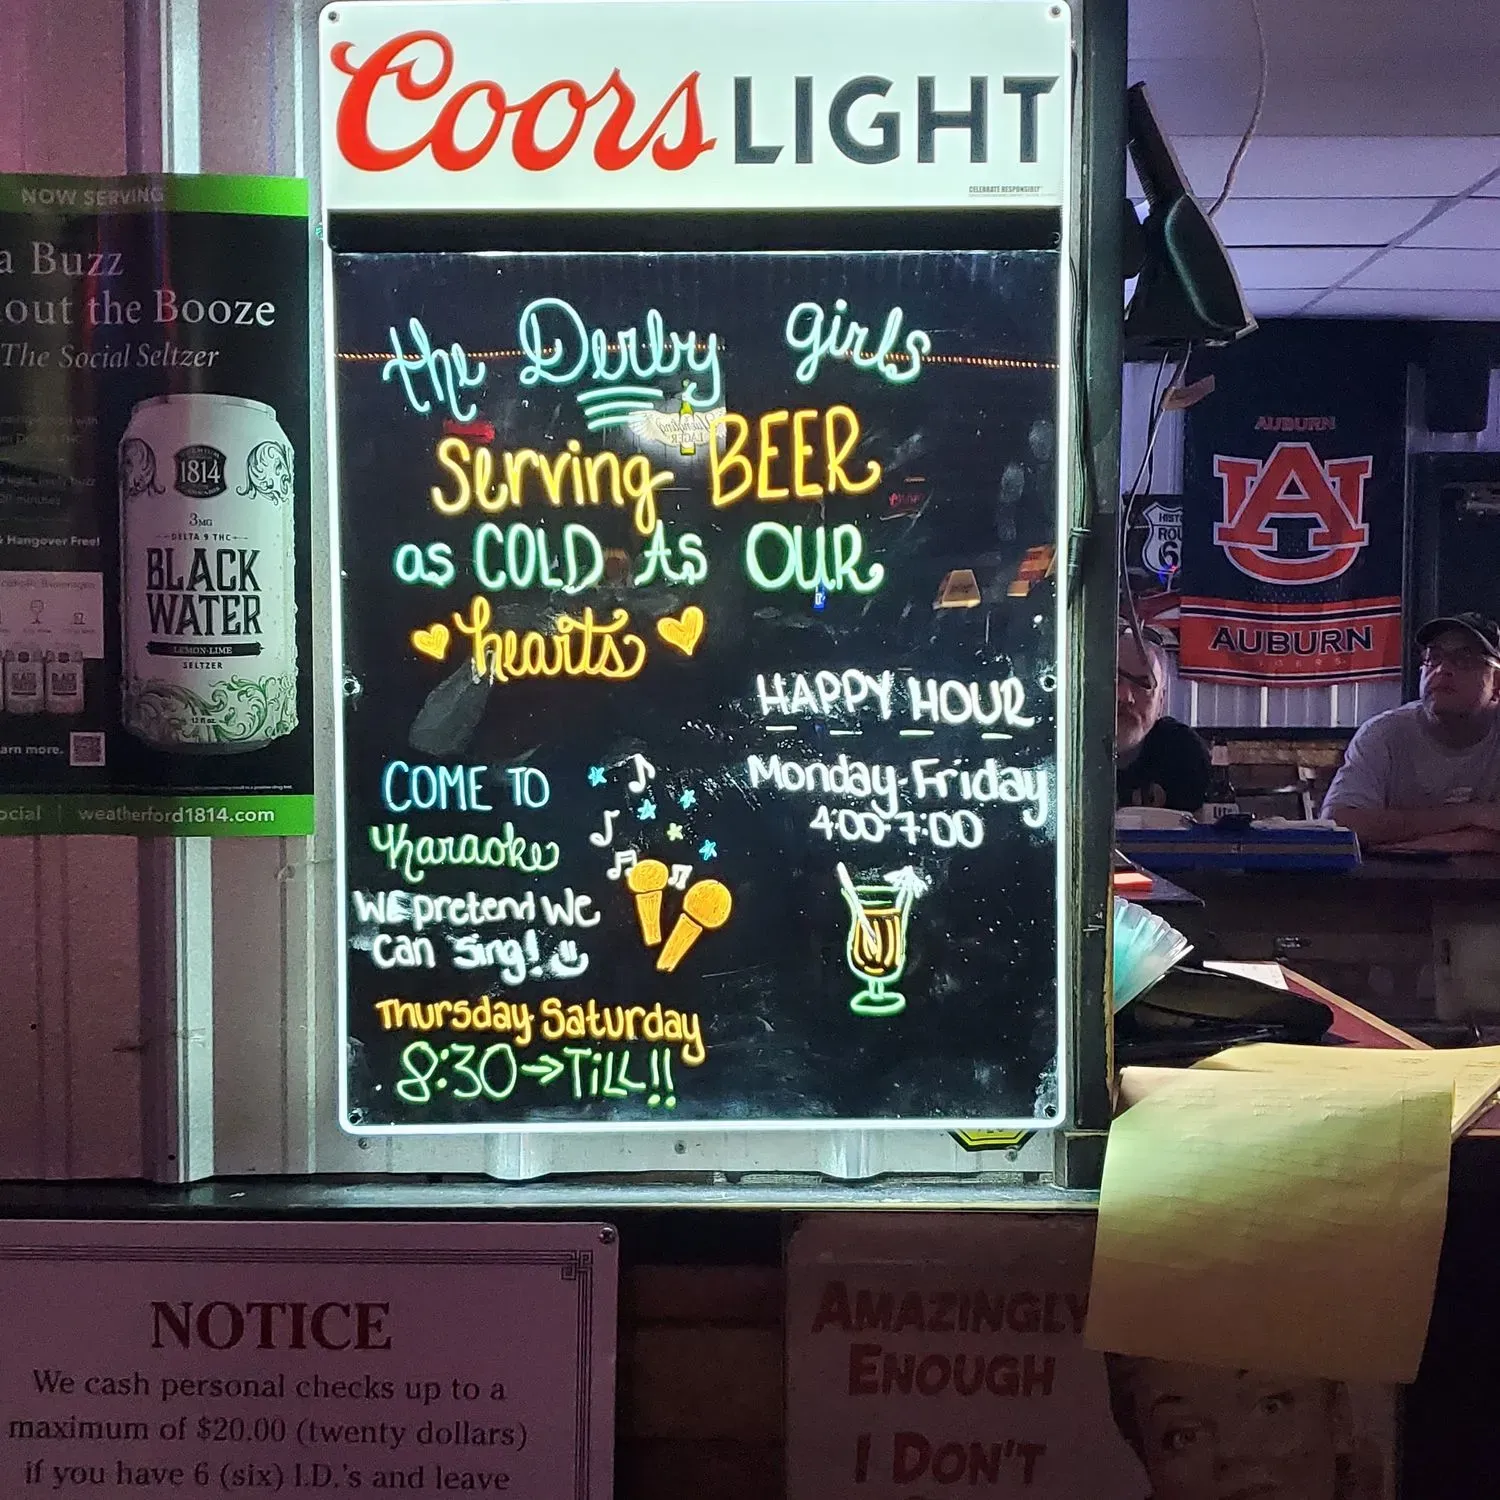 Coors LIGHT
CELEBRATE RESPONSIBLY
the Derby girls
Serving BEER
as COLD As OUR
hearts
HAPPY HOUR
Monday-Friday
4:00-7:00
COME TO
Karaoke
WE pretend We
can sing!
Thursday-Saturday
8:30→TiLL!!
NOW SERVING
a Buzz
out the Booze
The Social Seltzer
& Hangover Free!
1814
3MG
DELTA 9 THC
BLACK
WATER
LEMON-LIME
SELTZER
12 fl oz
arn more.
ocial | weatherford1814.com
AUBURN
AU
AUBURN
TIGERS
HIST
ROU
6
NOTICE
We cash personal checks up to a
maximum of $20.00 (twenty dollars)
if you have 6 (six) I.D.'s and leave
AMAZINGLY
ENOUGH
I DON'T